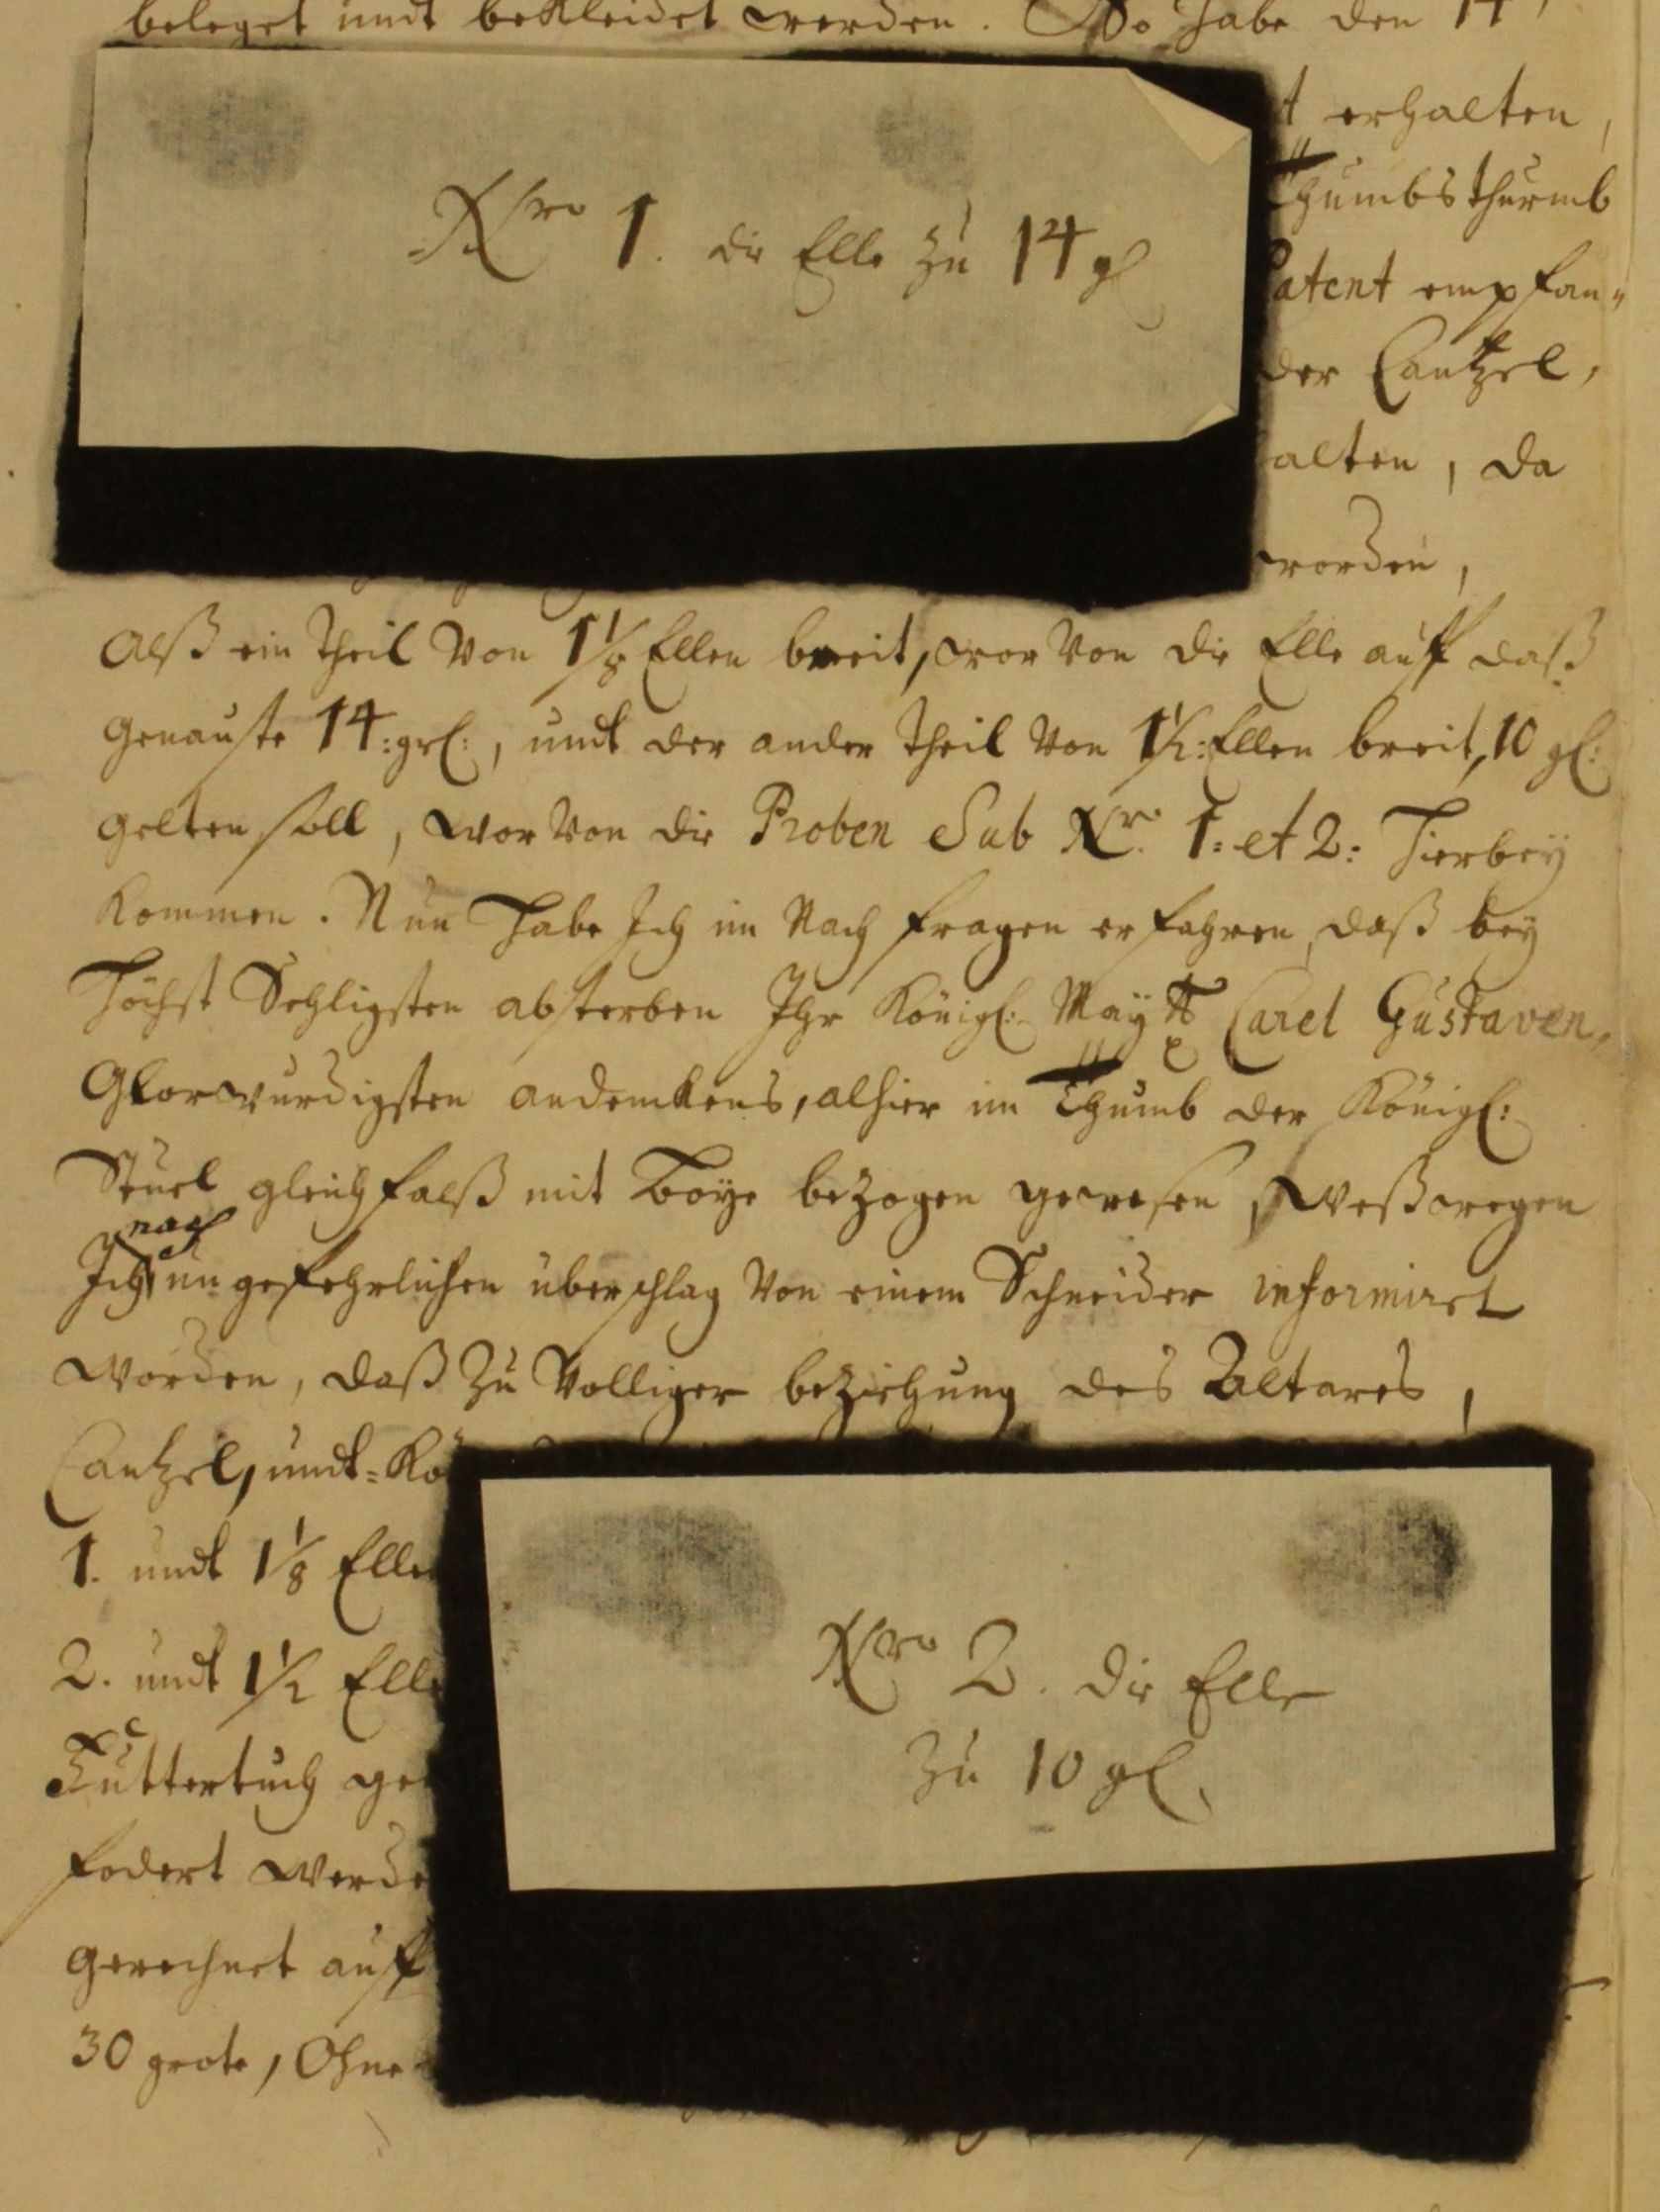 beleget undt bekleidet werden. So habe den 14
Nro 1. die Elle zu 14 gl
erhalten,
Thumbsthurmb
Patent empfan"
der Cantzel,
alten, da
worden,
alß ein theil von 1 1/8 Ellen breit, wor von die Elle auff daß
genauste 14: grl:, undt der ander theil von 1 1/2: Ellen breit, 10 gl:
gelten soll, wor von die Proben Sub Nr. 1: et 2: hierbey
kommen. Nun habe Ich im Nach fragen erfahren, daß bey
höchst Sehligsten absterben Ihr Königl: Maytt Carel Gustaven,
Glorwürdigsten andenckens, alhier im Thumb der Königl:
Stuel gleichfalß mit Boye bezogen gewesen, weßwegen
nach
Ich ungefehrlichen überschlag von einem Schneider informiret
worden, daß zu völliger beziehung des Altares,
Cantzel, undt= Kö
1. undt 1 1/8 Elle
2. undt 1 1/2 Elle
Nro 2. die Elle
zu 10 gl.
Futtertuch ge
fodert werde
gerechnet auff
30 grote, Ohne